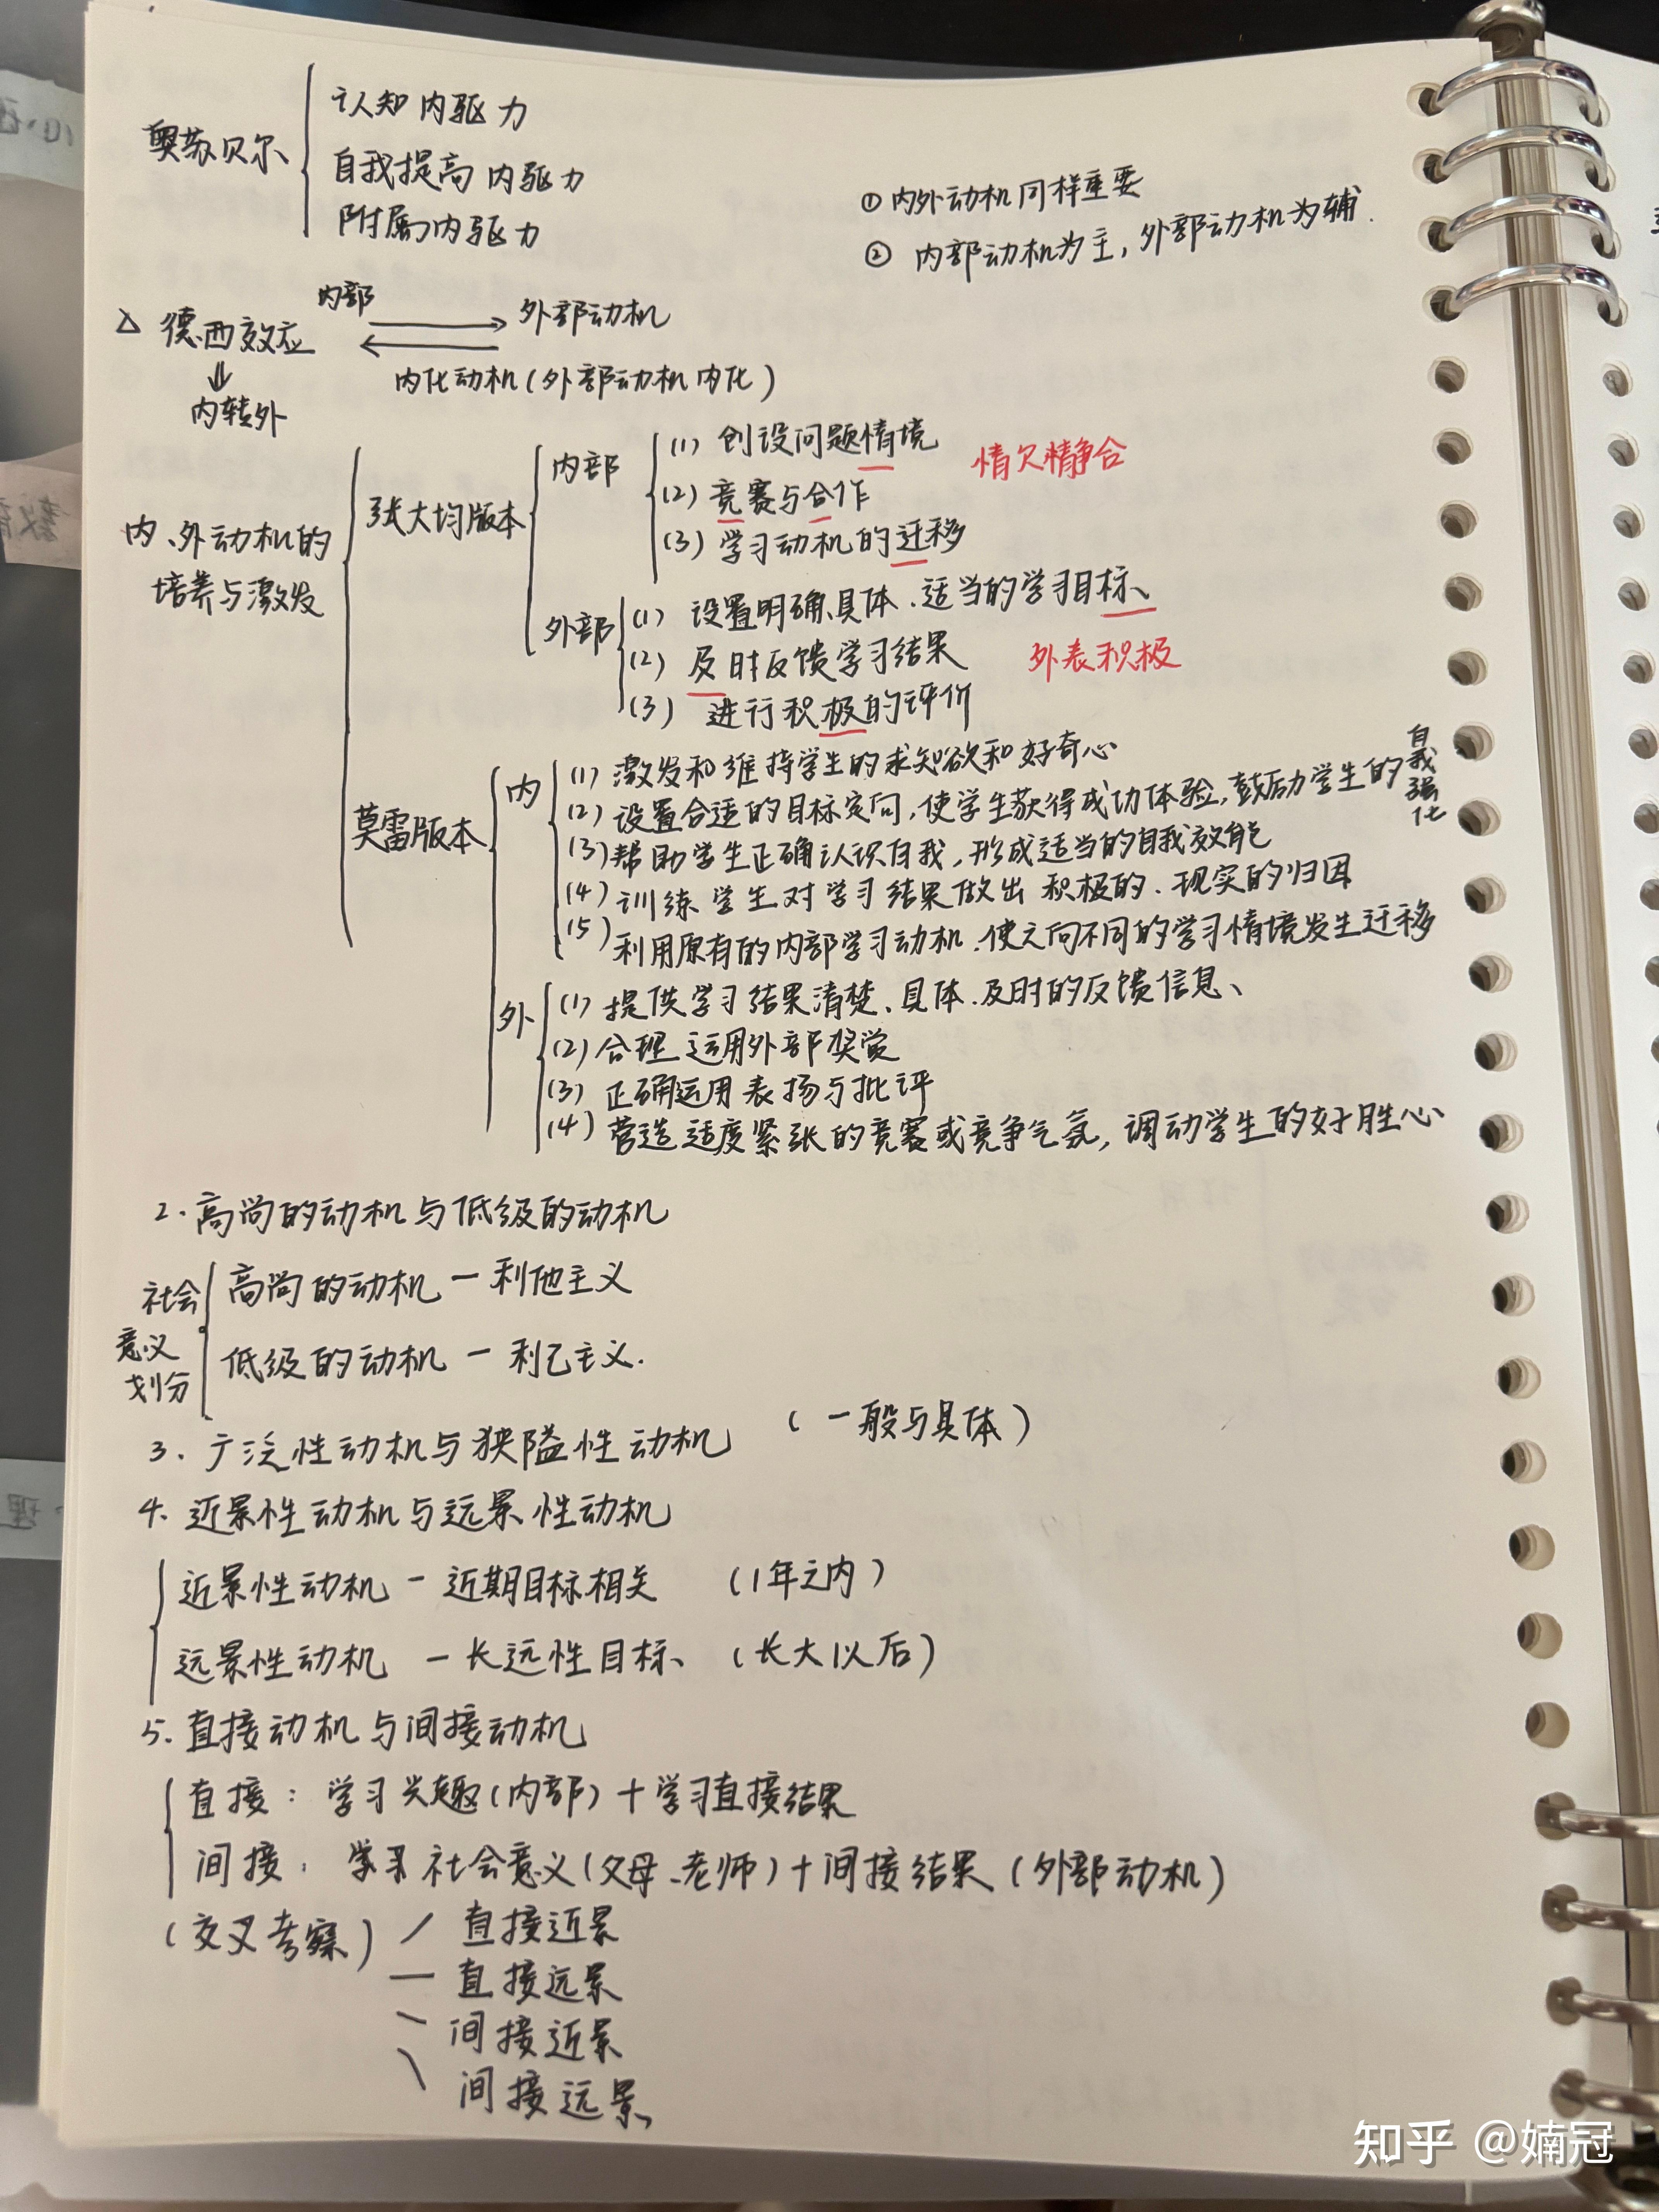 奥苏贝尔
认知内驱力
自我提高内驱力
附属内驱力
①内外动机同样重要
② 内部动机为主，外部动机为辅.
△ 德西效应
内部
外部动机
内化动机(外部动机内化)
⇓
内转外
内、外动机的
培养与激发
张大均版本
内部
(1) 创设问题情境
(2) 竞赛与合作
(3) 学习动机的迁移
外部
(1) 设置明确、具体、适当的学习目标、
(2) 及时反馈学习结果
外表积极
(3) 进行积极的评价
莫雷版本
内
(1) 激发和维持学生的求知欲和好奇心
(2) 设置合适的目标定向，使学生获得成功体验，鼓励学生的自我强化
(3) 帮助学生正确认识自我，形成适当的自我效能
(4) 训练学生对学习结果做出积极的、现实的归因
(5) 利用原有的内部学习动机、使之向不同的学习情境发生迁移
外
(1) 提供学习结果清楚、具体、及时的反馈信息、
(2) 合理运用外部奖赏
(3) 正确运用表扬与批评
(4) 营造适度紧张的竞赛或竞争气氛，调动学生的好胜心
2. 高尚的动机与低级的动机
社会
意义
划分
高尚的动机 — 利他主义
低级的动机 — 利己主义.
3. 广泛性动机与狭隘性动机 (一般与具体)
4. 近景性动机与远景性动机
近景性动机 — 近期目标相关 (1年之内)
远景性动机 — 长远性目标、 (长大以后)
5. 直接动机与间接动机
直接： 学习兴趣(内部) + 学习直接结果
间接： 学习社会意义(父母、老师) + 间接结果 (外部动机)
(交叉考察)
直接近景
直接远景
间接近景
间接远景
知乎 @婻冠